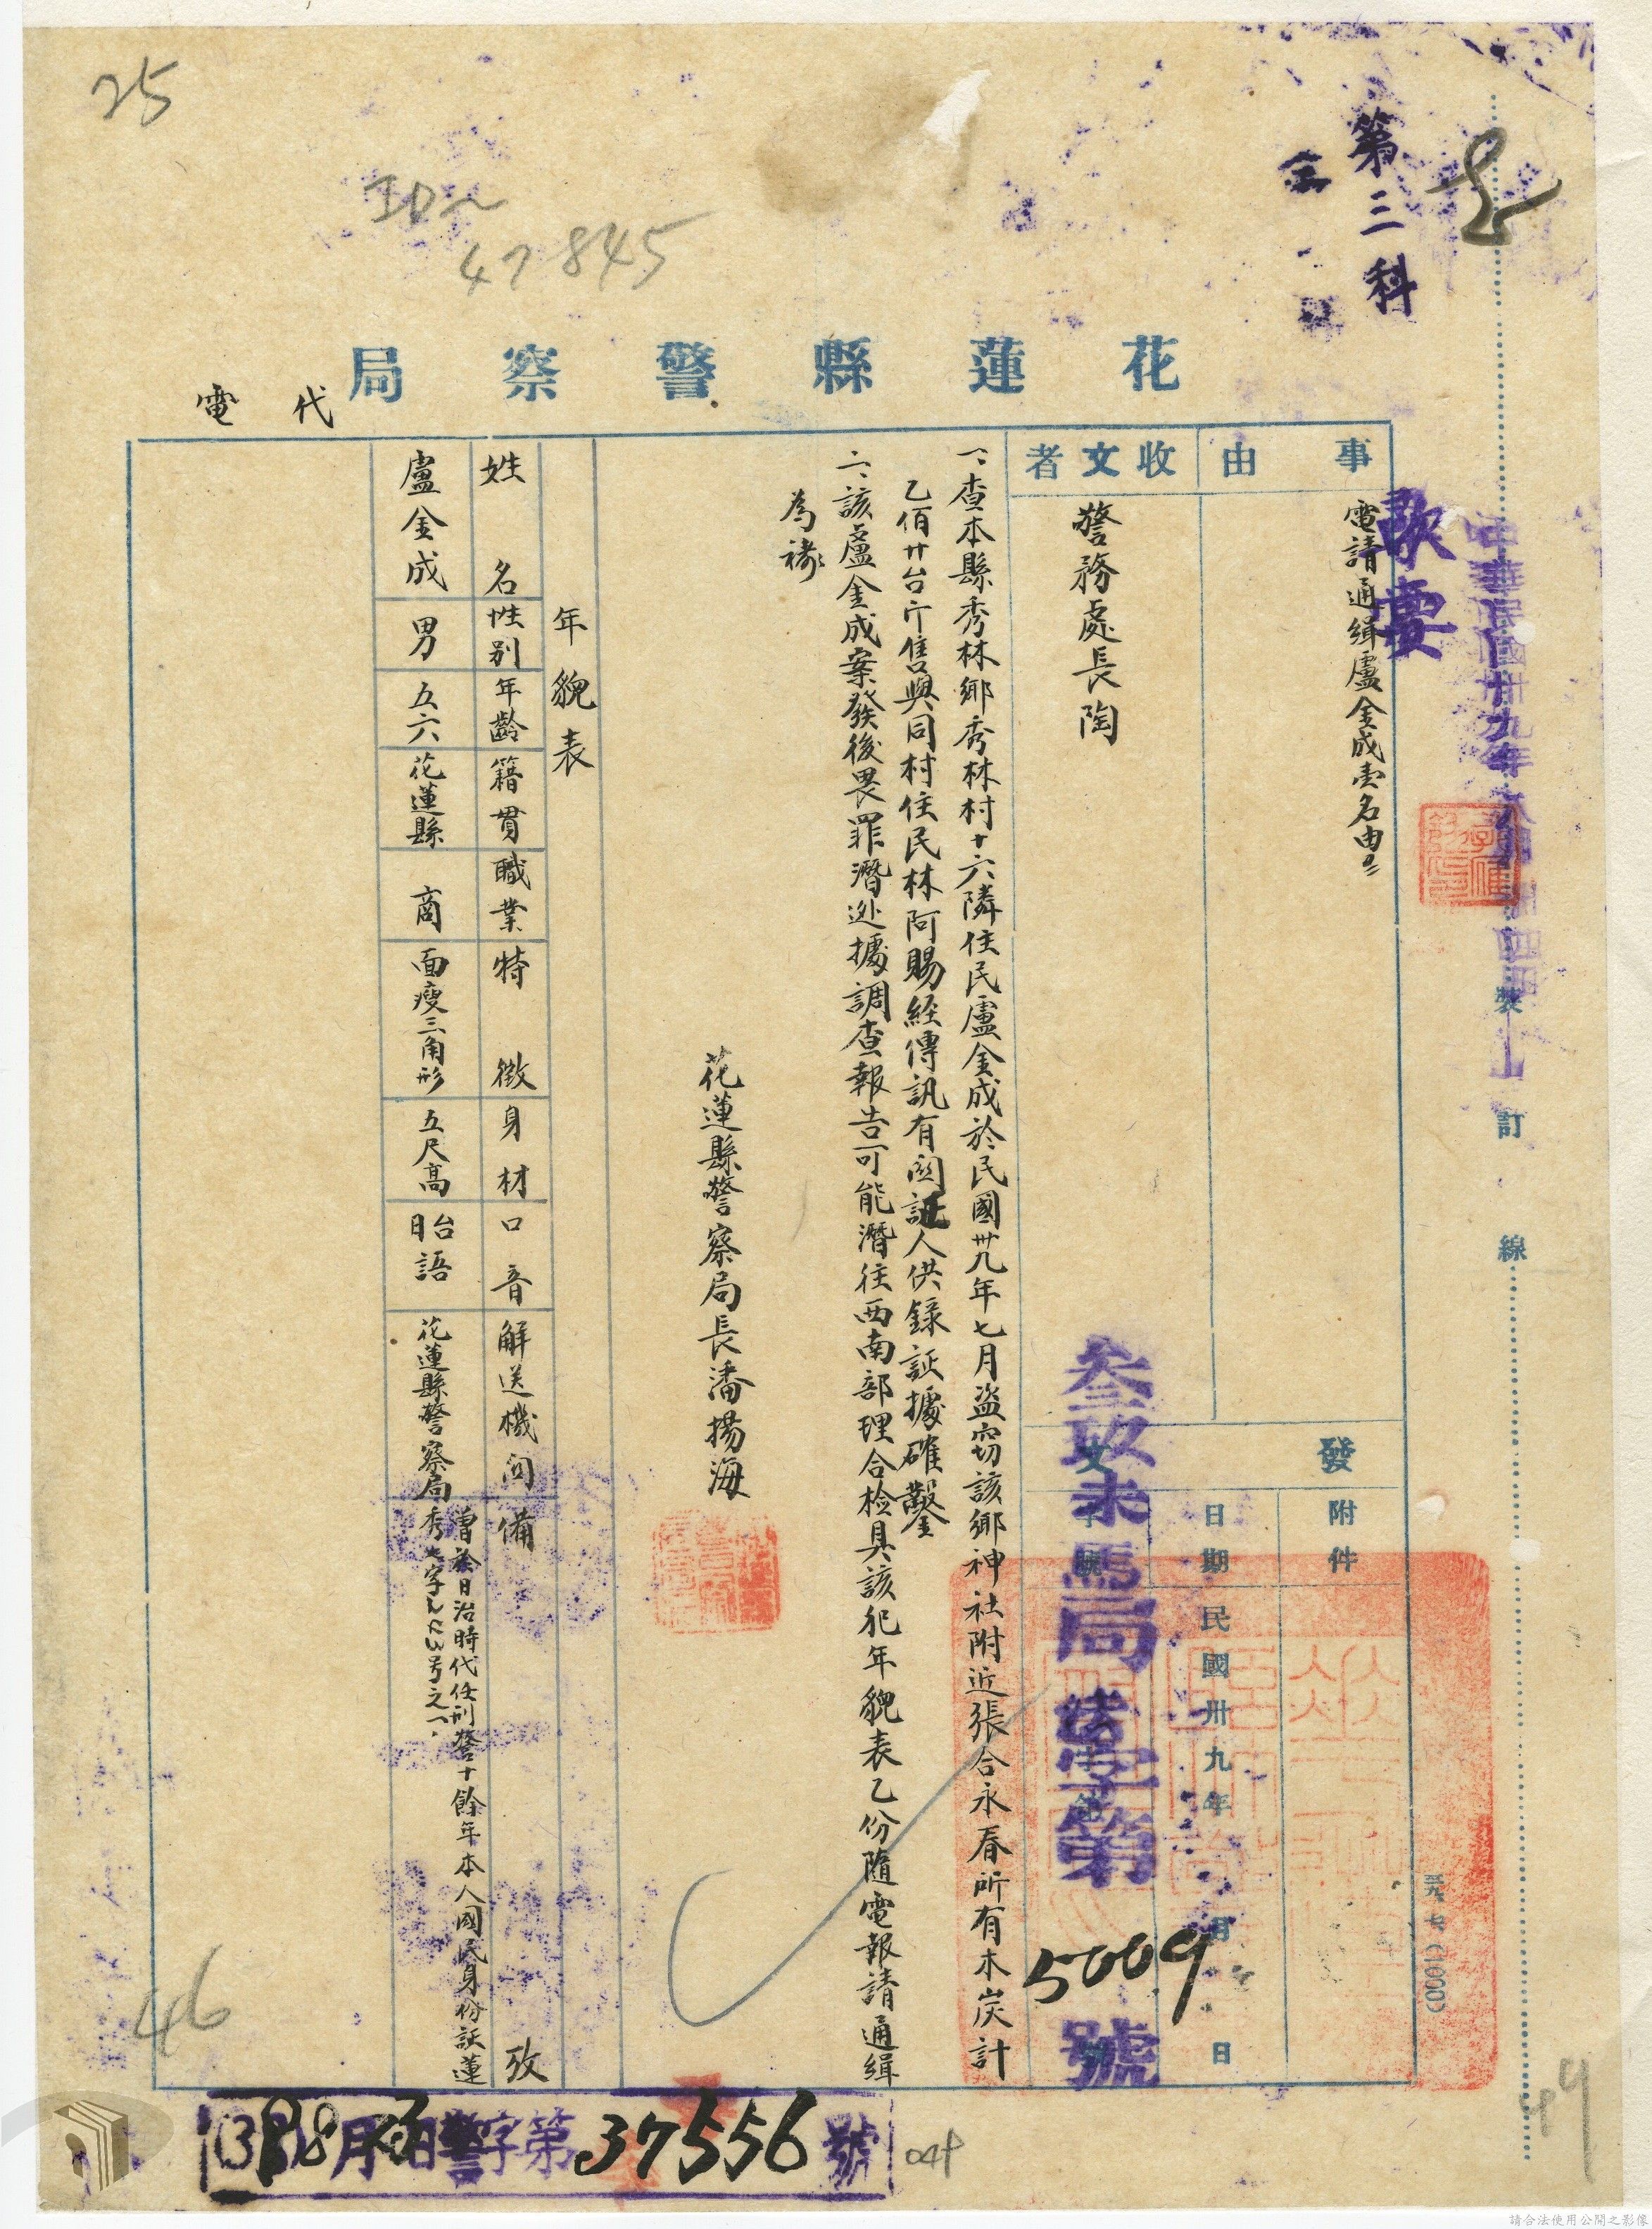 25
47845
第三科
花蓮縣警察局
代電
事由
電請通緝盧金成壹名由
收文者
警務處長陶
發文
附件
日期
民國卅九年 月 日
字號
叁玖未 局 字第5009號
一、查本縣秀林鄉秀林村十六隣住民盧金成於民國卅九年七月盜窃該鄉神社附近張合永春所有木炭計
乙佰廿台斤售與同村住民林阿賜経傳訊有関証人供錄証據確鑿
二、該盧金成案發後畏罪潛逃據調查報告可能潛往西南部理合檢具該犯年貌表乙份隨電報請通緝
為禱
花蓮縣警察局長潘揚海
年貌表
姓名
性别
年齡
籍貫
職業
特徵
身材
口音
解送機関
備攷
盧金成
男
五六
花蓮縣
商
面瘦三角形
五尺高
台日語
花蓮縣警察局
曾於日治時代任刑警十餘年本人國民身份証蓮
秀 字 号之一
裝訂線
中華民國卅九年
(1000)
月 日警字第37556號
46
49
請合法使用公開之影像